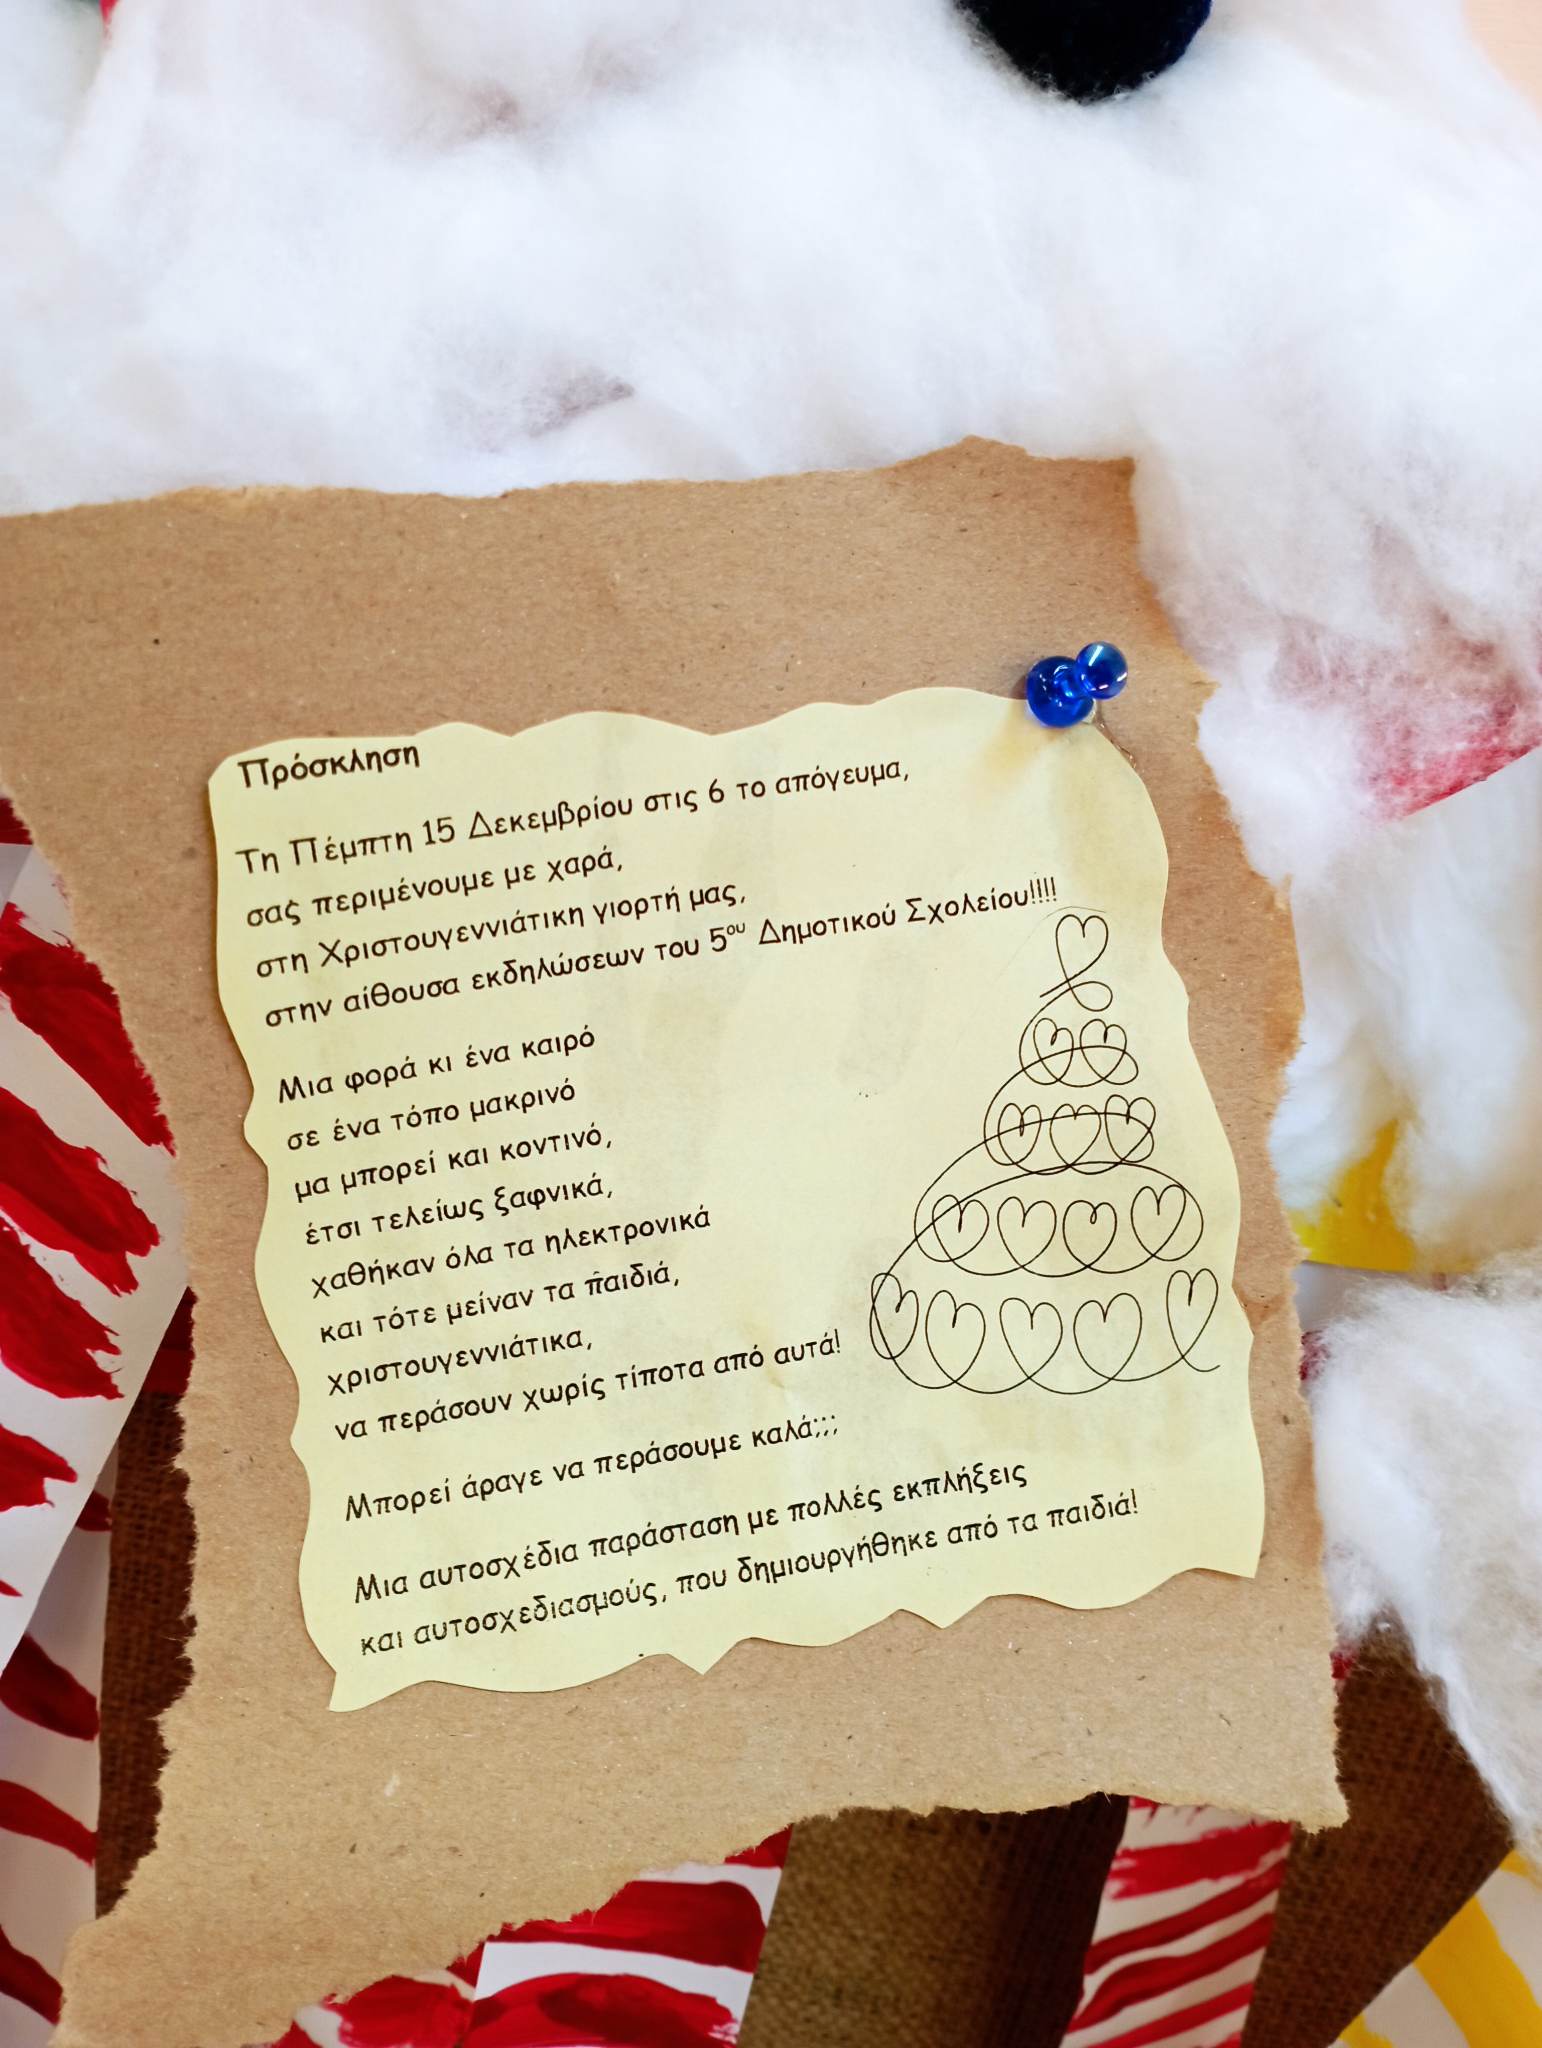 Πρόσκληση
Τη Πέμπτη 15 Δεκεμβρίου στις 6 το απόγευμα,
σας περιμένουμε με χαρά,
στη Χριστουγεννιάτικη γιορτή μας,
στην αίθουσα εκδηλώσεων του 5ου Δημοτικού Σχολείου!!!!
Μια φορά κι ένα καιρό
σε ένα τόπο μακρινό
μα μπορεί και κοντινό,
έτσι τελείως ξαφνικά,
χαθήκαν όλα τα ηλεκτρονικά
και τότε μείναν τα παιδιά,
χριστουγεννιάτικα,
να περάσουν χωρίς τίποτα από αυτά!
Μπορεί άραγε να περάσουμε καλά;;;
Μια αυτοσχέδια παράσταση με πολλές εκπλήξεις
και αυτοσχεδιασμούς, που δημιουργήθηκε από τα παιδιά!